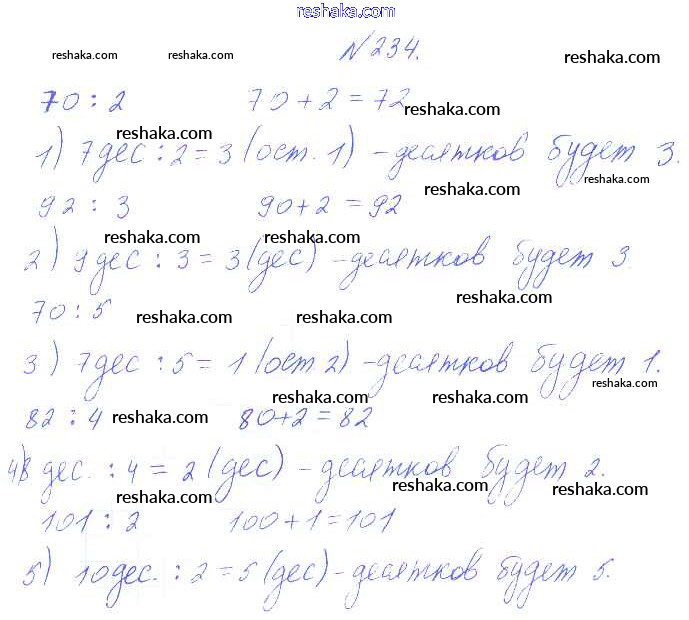 reshaka.com
№234.
reshaka.com reshaka.com reshaka.com
70 : 2 70 + 2 = 72 reshaka.com
reshaka.com
1) 7 дес : 2 = 3 (ост. 1) - десятков будет 3.
reshaka.com reshaka.com
92 : 3 90 + 2 = 92
reshaka.com reshaka.com
2) 9 дес : 3 = 3 (дес) - десятков будет 3.
reshaka.com
70 : 5 reshaka.com reshaka.com
reshaka.com reshaka.com
3) 7 дес : 5 = 1 (ост 2) - десятков будет 1.
reshaka.com reshaka.com
82 : 4 reshaka.com 80 + 2 = 82 reshaka.com
4) 8 дес. : 4 = 2 (дес) - десятков будет 2.
reshaka.com reshaka.com reshaka.com
101 : 2 100 + 1 = 101
reshaka.com reshaka.com
5) 10 дес. : 2 = 5 (дес) - десятков будет 5.
reshaka.com reshaka.com